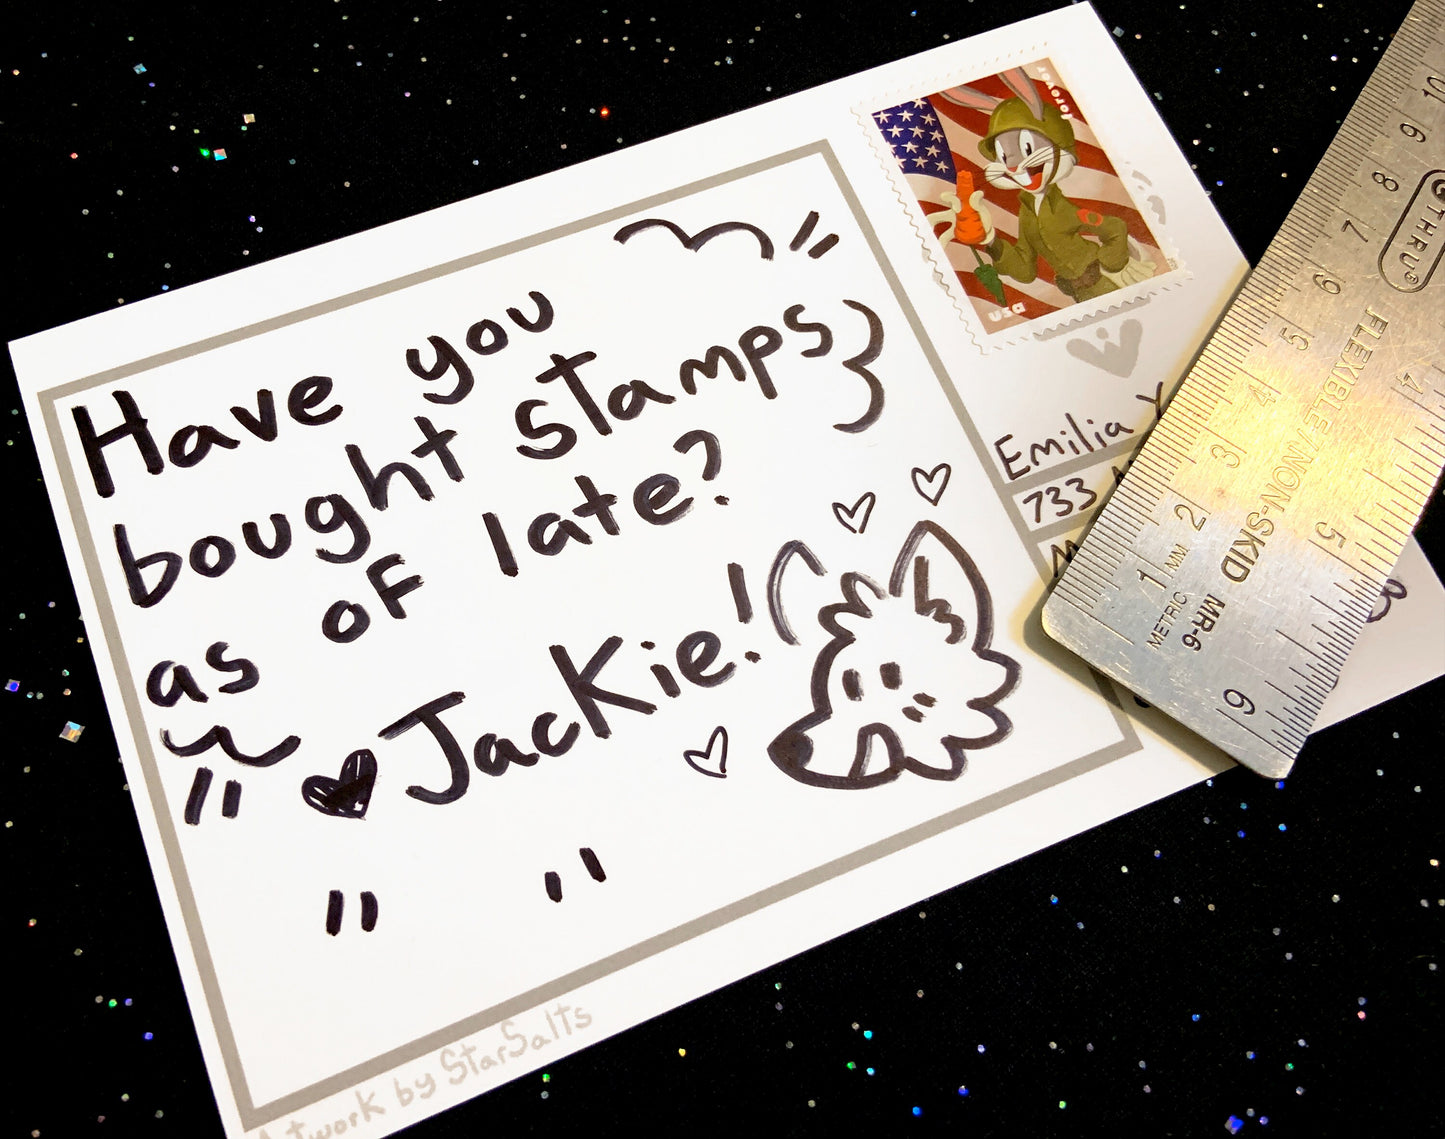 Have you
bought stamps
as of late?
Jackie!
Artwork by StarSalts
forever
USA
Emilia
733
10
9
8
7
6
5
4
3
2
1
MM
METRIC
THRU
FLEXIBLE/NON-SKID
MR-6
4
5
6